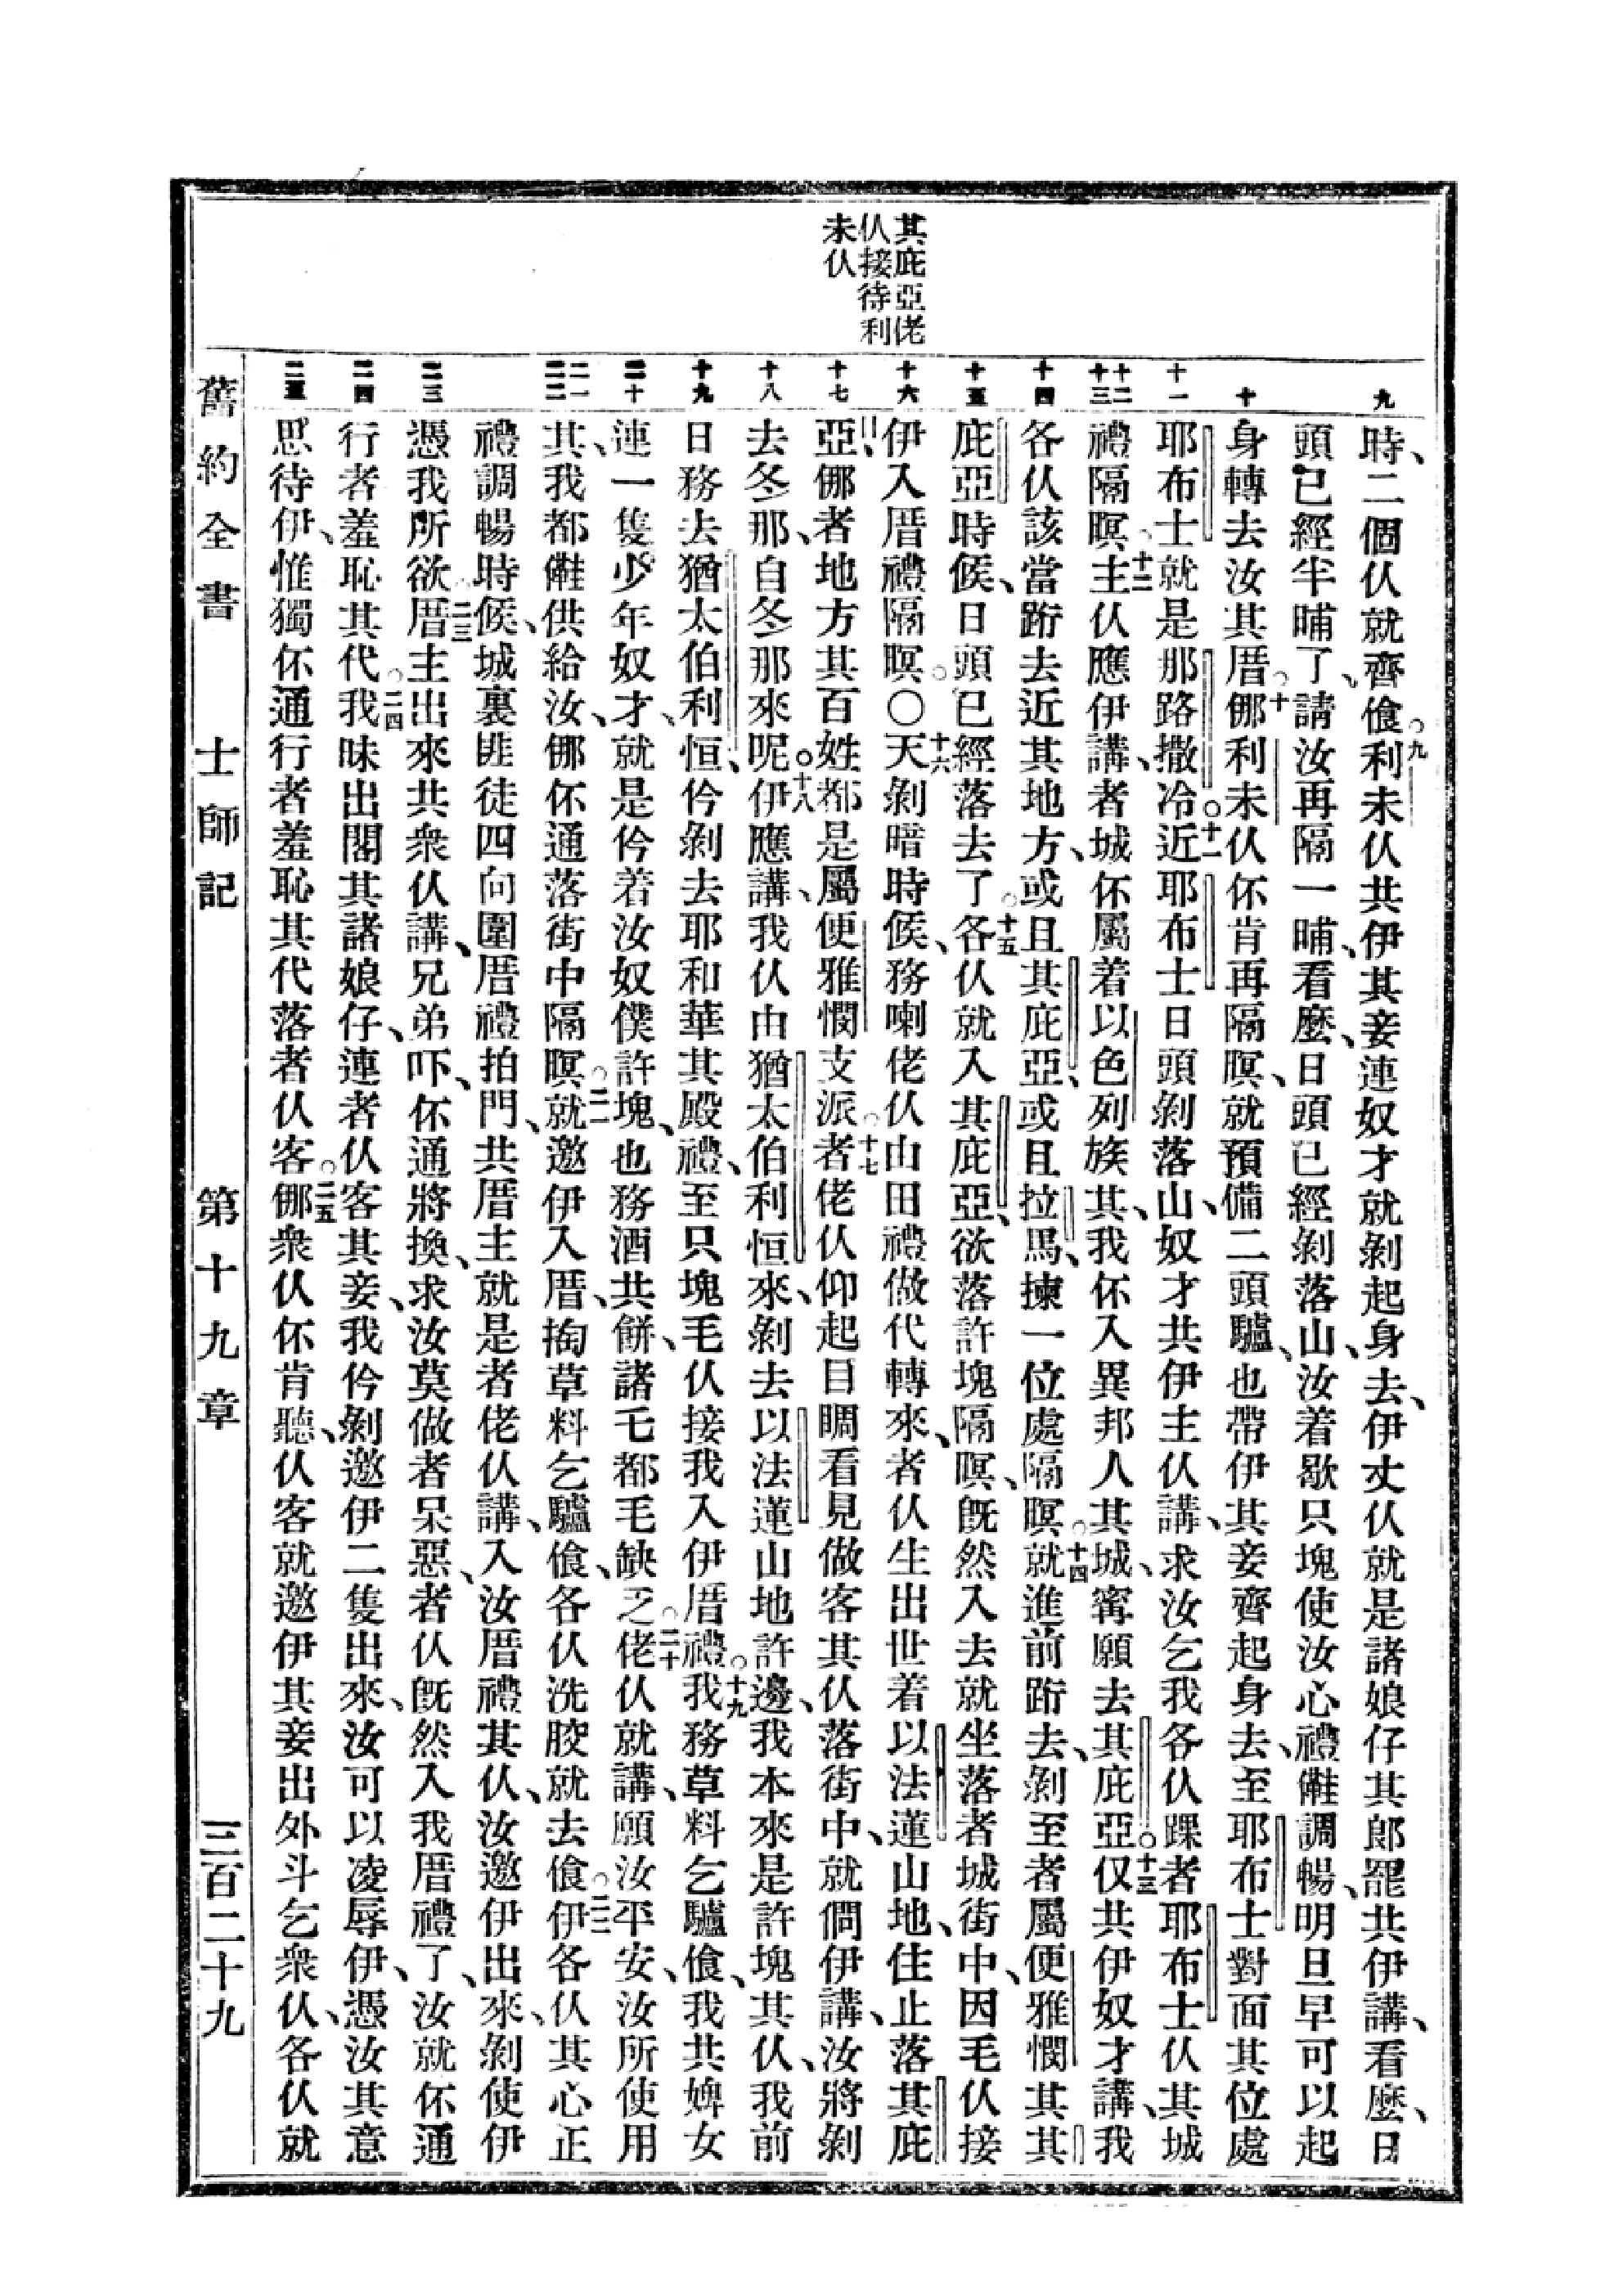 其庇亞佬
仈接待利
未仈
九
時、二個仈就齊飧○九利未仈共伊其妾連奴才就剝起身去、伊丈仈就是諸娘仔其郎罷共伊講、看麼、日
頭已經半晡了、請汝再隔一晡、看麼、日頭已經剝落山、汝着歇只塊使汝心禮㒕調暢、明旦早可以起
十
身轉去汝其厝○十㑚利未仈伓肯再隔暝、就預備二頭驢、也帶伊其妾齊起身去、至耶布士對面其位處
十一
耶布士就是那路撒冷○十一近耶布士日頭剝落山、奴才共伊主仈講、求汝乞我各仈踝者耶布士仈其城
十二
十三
禮隔暝○十二主仈應伊講、者城伓屬着以色列族其、我伓入異邦人其城、寗願去其庇亞○十三仅共伊奴才講、我
十四
各仈該當跡去近其地方、或且其庇亞、或且拉馬揀一位處隔暝○十四就進前跡去、剝至者屬便雅憫其其
十五
庇亞時候、日頭已經落去了○十五各仈就入其庇亞、欲落許塊隔暝、旣然入去就坐落者城街中、因毛仈接
十六
伊入厝禮隔暝○〇十六天剝暗時候、務喇佬仈由田禮做代轉來、者仈生出世着以法蓮山地、住止落其庇
十七
亞、㑚者地方其百姓都是屬便雅憫支派○十七者佬仈仰起目睭看見做客其仈落街中、就僩伊講、汝將剝
十八
去冬那、自冬那來呢○十八伊應講、我仈由猶太伯利恒來、剝去以法蓮山地許邊、我本來是許塊其仈、我前
十九
日務去猶太伯利恒、仱剝去耶和華其殿禮、至只塊毛仈接我入伊厝禮○十九我務草料乞驢飧、我共婢女
二十
連一隻少年奴才、就是仱着汝奴僕許塊、也務酒共餅、諸乇都毛缺乏○二十佬仈就講、願汝平安、汝所使用
二一
二二
其、我都㒕供給汝、㑚伓通落街中隔暝○二一就邀伊入厝、掏草料乞驢飧、各仈洗骹就去飧○二二伊各仈其心正
禮調暢時候、城裏匪徒四向圍厝禮拍門、共厝主就是者佬仈講、入汝厝禮其仈、汝邀伊出來、剝使伊
二三
憑我所欲○二三厝主出來共衆仈講、兄弟吓、伓通將換、求汝莫做者呆惡、者仈旣然入我厝禮了、汝就伓通
二四
行者羞恥其代○二四我昧出閣其諸娘仔、連者仈客其妾、我仱剝邀伊二隻出來、汝可以凌辱伊、憑汝其意
二五
思待伊、惟獨伓通行者羞恥其代落者仈客○二五㑚衆仈伓肯聽、仈客就邀伊其妾出外斗乞衆仈、各仈就
舊約全書　士師記　第十九章　三百二十九